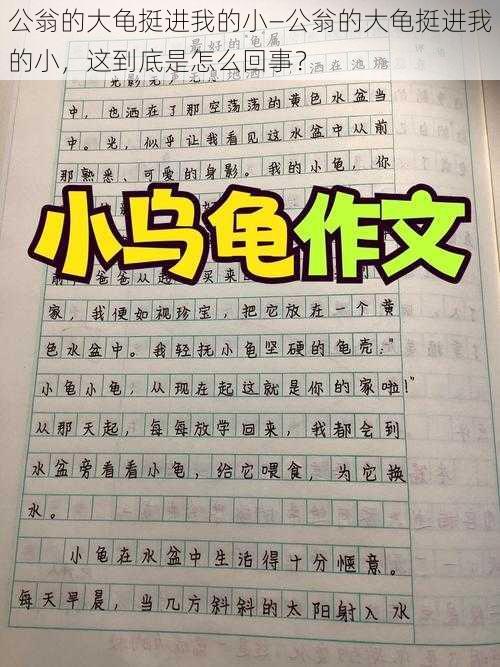 公翁的大龟挺进我的小—公翁的大龟挺进我
的小，这到底是怎么回事？
最好的"龟"属
光影无声无息地洒在池塘
中，也洒在了那空荡荡的黄色水盆当
中。光，似乎让我看见这水盆中从前
那熟悉、可爱的身影。我的小龟，你
小乌龟作文
前，爸爸从超市买来
家，我便如视珍宝，把它放在一个黄
色水盆中。我轻抚小龟坚硬的龟壳："
小龟小龟，从现在起这就是你的家啦！"
从那天起，每每放学回来，我都会到
水盆旁看看小龟，给它喂食，为它换
水。
小龟在水盆中生活得十分惬意。
每天早晨，当几方斜斜的太阳射入水